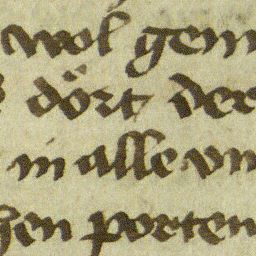 wol gem
s dört der
in alle vn
hen porten